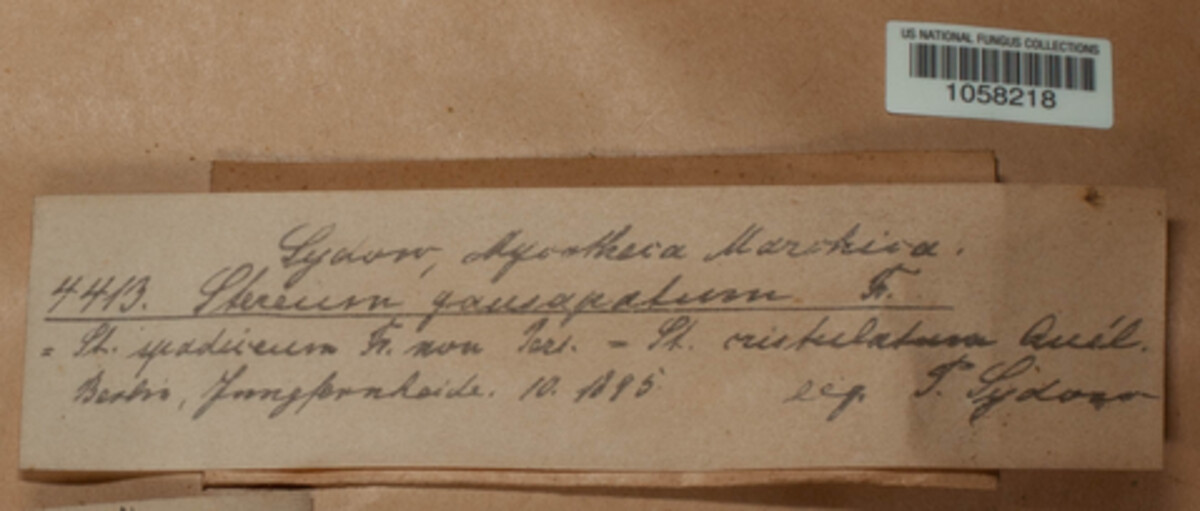 US NATIONAL FUNGUS COLLECTIONS
1058218
Sydow, Mycotheca Marchica.
4413. Stereum gausapatum Fr.
= St. spadiceum Fr. non Pers. = St. cristulatum Quél.
Berlin, Jungfernheide. 10. 1895 leg. P. Sydow